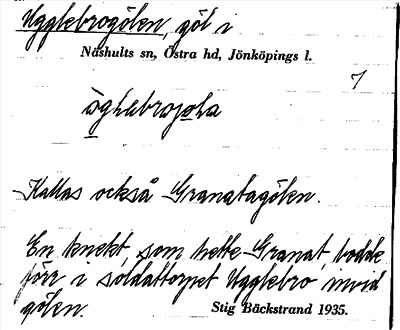 Ugglebrogölen, göl i
Näshults sn, Östra hd, Jönköpings l.
7
Kallas också Granatagölen.
En knekt, som hette Granat, bodde
förr i soldattorpet Ugglebro invid
gölen.
Stig Bäckstrand 1935.